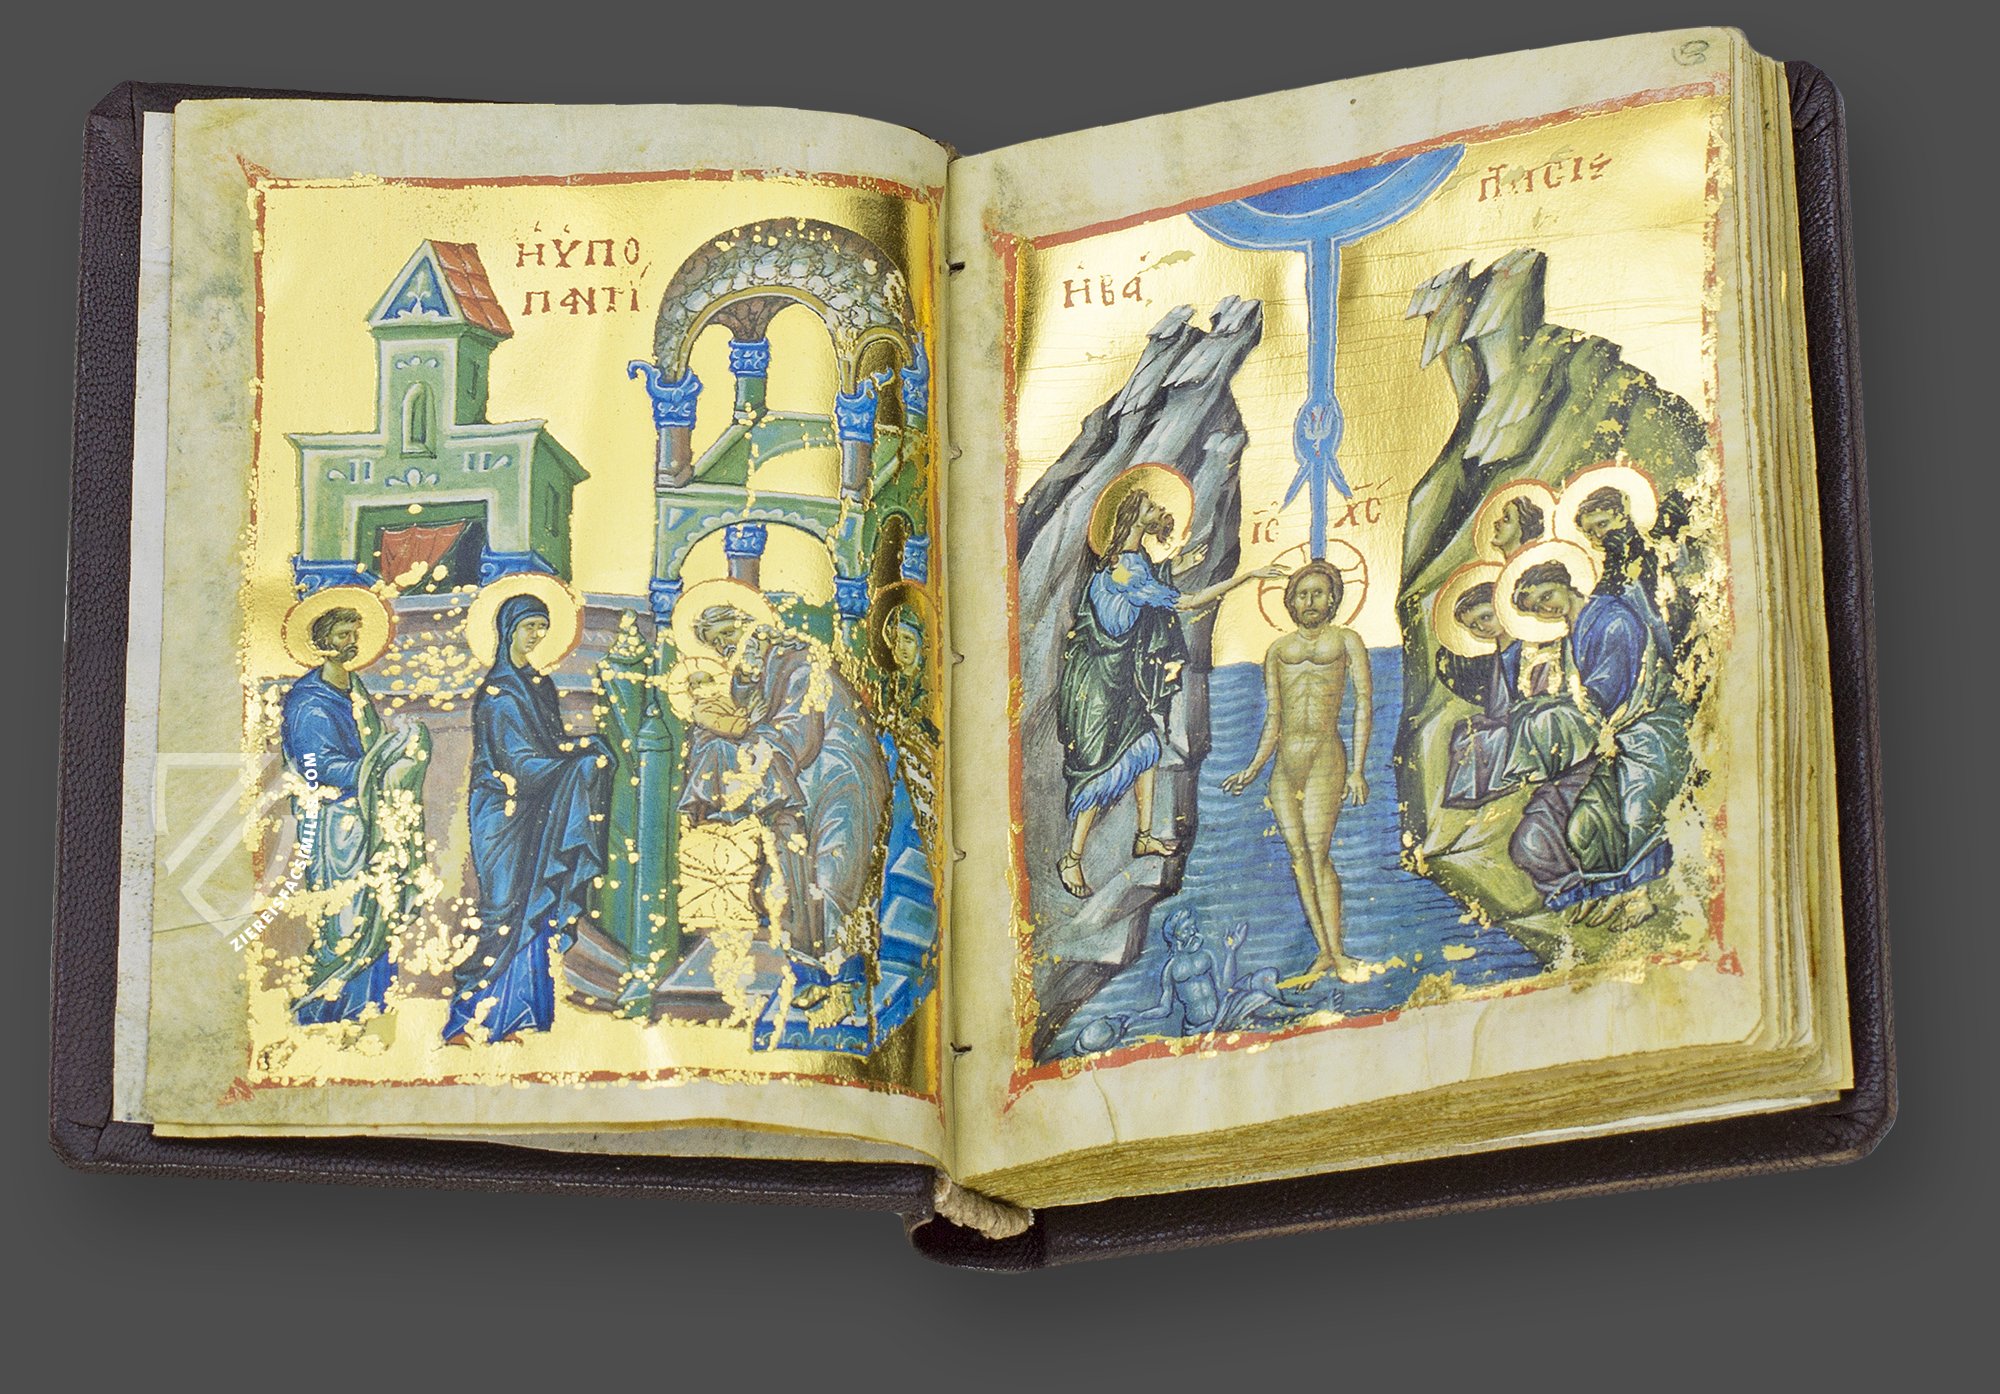 ἩὙΠΟ
ΠΑΝΤΊ
ἩΒΆ
ΠΤΙСΙς
ΙС ΧС
ZIEREISFACSIMILE.COM